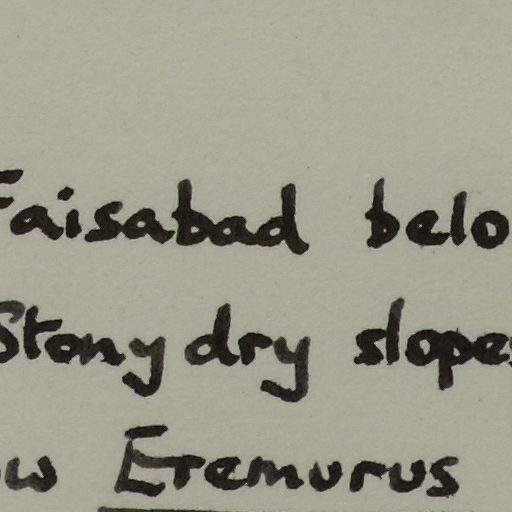 Faisabad belo
Stony dry slopes
ow Eremurus